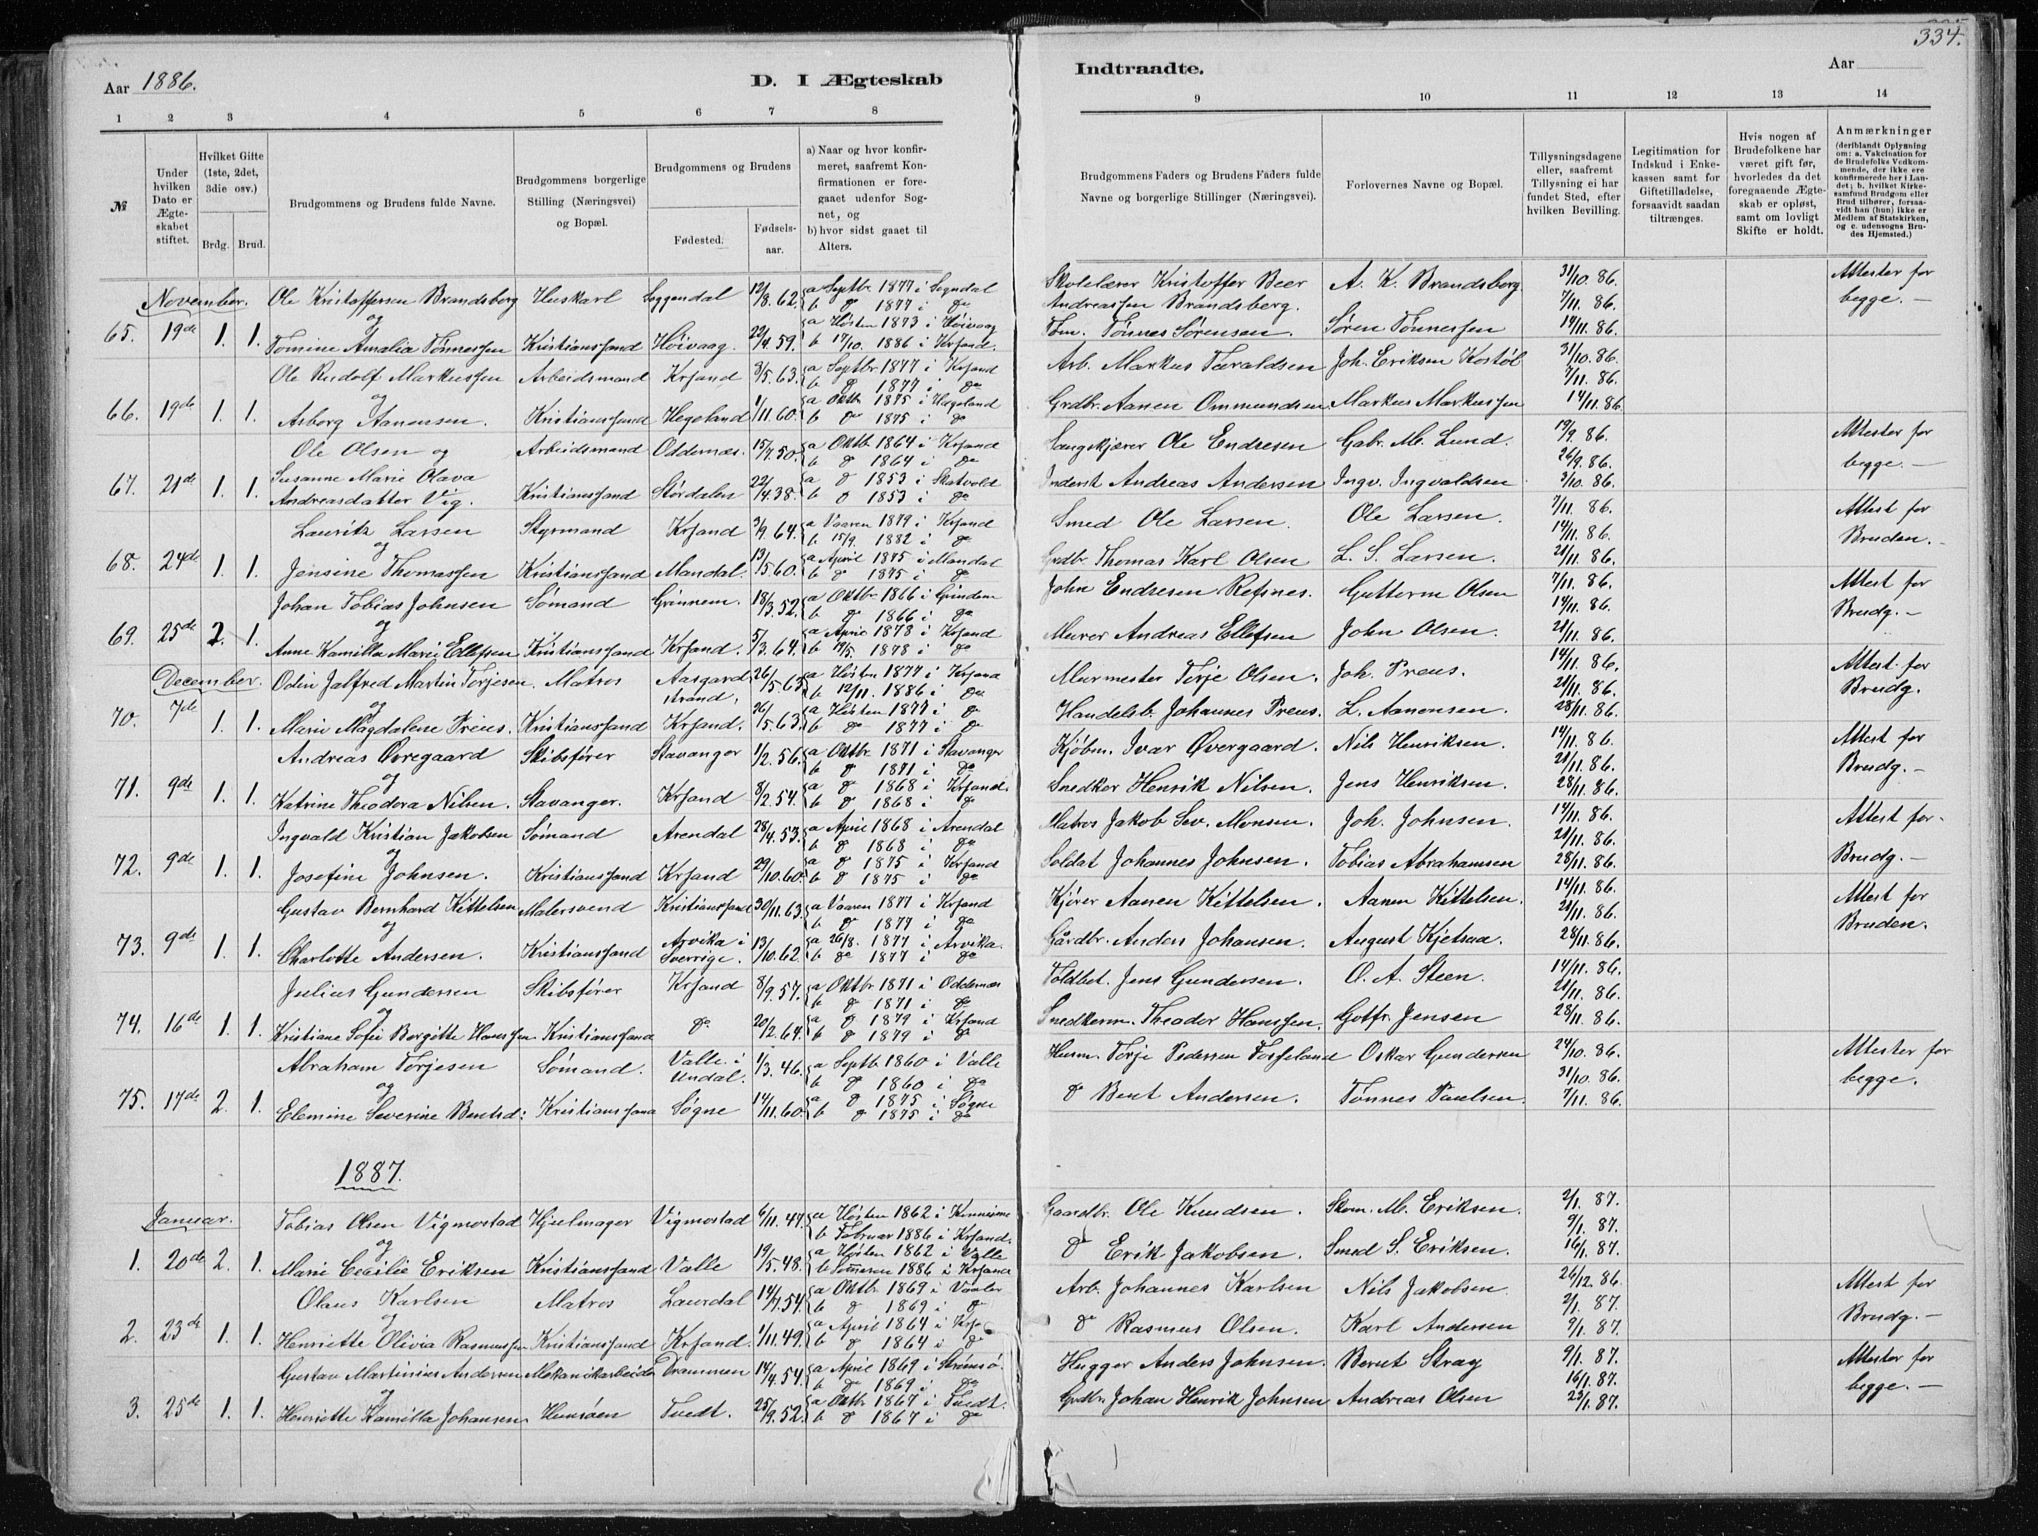 334.
Aar 1886.
D. I Ægteskab
Indtraadte.
Aar
1 2 3 4 5 6 7 8
9 10 11 12 13 14
№
Under hvilken Dato er Ægteskabet stiftet.
Hvilket Gifte (1ste, 2det, 3die osv.)
Brdg. Brud.
Brudgommens og Brudens fulde Navne.
Brudgommens borgerlige Stilling (Næringsvei) og Bopæl.
Brudgommens og Brudens
Fødested. Fødselsaar.
a) Naar og hvor konfirmeret, saafremt Konfirmationen er foregaaet udenfor Sognet, og
b) hvor sidst gaaet til Alters.
Brudgommens Faders og Brudens Faders fulde Navne og borgerlige Stillinger (Næringsvei).
Forlovernes Navne og Bopæl.
Tillysningsdagene eller, saafremt Tillysning ei har fundet Sted, efter hvilken Bevilling.
Legitimation for Indskud i Enkekassen samt for Giftetilladelse, forsaavidt saadan tiltrænges.
Hvis nogen af Brudefolkene har været gift før, hvorledes da det foregaaende Ægteskab er opløst, samt om lovligt Skifte er holdt.
Anmærkninger (deriblandt Oplysning om: a. Vakcination for de Brudefolks Vedkommende, der ikke ere konfirmerede her i Landet; b. hvilket Kirkesamfund Brudgom eller Brud tilhører, forsaavidt han (hun) ikke er Medlem af Statskirken, og c. udensogns Brudes Hjemsted.)
November. Ole Kristoffersen Brandsberg Huskarl Soggendal 12/8.62. a Septbr 1877 i Sogndal b do 1877 i do Skolelærer Kristoffer Beer Andreassen Brandsberg. A. K. Brandsberg. 31/10.86. 7/11.86. Attester for begge.—
og
65. 19de 1. 1. Tomine Amalia Tønnessen Kristianssand Høivaag. 22/4.59. a Høsten 1873 i Høivaag b 17/10. 1886 i Krsand. Tøm. Tønnes Sørensen. Søren Tønnessen 14/11.86.
Ole Rudolf Markussen Arbeidsmand Krsand 3/5.63. a Septbr 1877 i Krsand b do 1877 i do Arb. Markus Taraldsen Joh. Eriksen Kostøl 31/10.86. 7/11.86.
og
66. 19de 1. 1. Asborg Aanensen. Kristianssand Hegeland 1/11.60. a Oktbr 1875 i Hægeland b do 1875 i do Grdbr. Aanen Ommundsen. Markus Markussen 14/11.86.
Ole Olsen og Arbeidsmand Oddernæs. 15/7.50. a Oktbr 1864 i Krsand b do 1864 i do Ole Endresen Gabr. M. Lund. 19/9.86. 26/9.86. Attester for begge.—
67. 21de 1. 1. Susanne Marie Olava Andreasdatter Vig. Kristianssand Størdalen 22/4.38. a do 1853 i Skatvold b do 1853 i do Inderst Andreas Andersen Ingv. Ingvaldsen 3/10.86.
Lauritz Larsen Styrmand Krsand 3/9.64. a Vaaren 1879 i Krsand b 15/9. 1882 i do Smed Ole Larsen. Ole Larsen. 7/11.86. 14/11.86. Attest for Bruden.—
og
68. 24de 1. 1. Jensine Thomassen Kristianssand Mandal. 13/5.60. a April 1875 i Mandal b do 1875 i do Grdbr. Thomas Karl Olsen L. S. Larsen. 21/11.86.
Johan Tobias Johnsen Sømand Grinnem. 18/3.52. a Oktbr 1866 i Grindem b do 1866 i do John Endresen Refsnes. Guttorm Olsen 7/11.86. 14/11.86. Attest for Brudg.—
og
69. 25de 2. 1. Anne Kamilla Marie Ellefsen Kristianssand Krsand. 5/3.64. a April 1878 i Krsand b 19/5. 1878 i do Murer Andreas Ellefsen John Olsen. 21/11.86.
December. Odin Jalfred Martin Torjesen. Matros Aasgardstrand. 26/5.63. a Høsten 1877 i Krsand b 12/11. 1886 i do Murmester Torje Olsen. Joh. Preus. 14/11.86. 21/11.86. Attest for Brudg.
og
70. 7de 1. 1. Marie Magdalene Preus. Kristianssand Krsand. 26/5.63. a Høsten 1877 i do b do 1877 i do Handelsb. Johannes Preus. L. Aanensen. 28/11.86.
Andreas Øvregaard Skibsfører Stavanger 1/2.56. a Oktbr 1871 i Stavanger b do 1871 i do Kjøbm. Ivar Øvergaard. Nils Henriksen. 14/11.86. 21/11.86. Attest for Brudg.—
og
71. 9de 1. 1. Katrine Theodora Nilsen. Stavanger. Krsand 8/2.54. a do 1868 i Krsand. b do 1868 i do Snedker Henrik Nilsen. Jens Henriksen. 28/11.86.
Ingvald Kristian Jakobsen Sømand Arendal 28/4.53. a April 1868 i Arendal b do 1868 i do Matros Jakob Sev. Monsen. Joh. Johnsen. 14/11.86. 21/11.86. Attest for Brudg.—
og
72. 9de 1. 1. Josefine Johnsen. Kristianssand Krsand 29/10.60. a do 1875 i Krsand b do 1875 i do Soldat Johannes Johnsen. Tobias Abrahamsen 28/11.86.
Gustav Bernhard Kittelsen Malersvend Kristianssand 30/11.63. a Vaaren 1877 i Krsand b do 1877 i do Kjører Aanen Kittelsen. Aanen Kittelsen. 14/11.86. 21/11.86. Attest for Bruden.
og
73. 9de 1. 1. Charlotte Andersen. Kristianssand Arvika i Sverrige. 13/10.62. a 26/8. 1877 i Arvika. b do 1877 i do Gårdbr. Anders Johansen. August Kjetsaa. 28/11.86.
Julius Gundersen Skibsfører Krsand 8/9.57. a Oktbr 1871 i Oddernæs b do 1871 i do Toldbet. Jens Gundersen. O. A. Steen. 14/11.86. 21/11.86.
og
74. 16de 1. 1. Kristiane Sofie Bergitte Hanssen. Kristianssand do 20/2.64. a do 1879 i Krsand b do 1879 i do Snedkerm. Theodor Hanssen. Gotfr. Jensen 28/11.86.
Abraham Torjesen Sømand. Valle i Undal. 1/3.46. a Septbr 1860 i Valle b do 1860 i do Husm. Torje Pedersen Fosseland Oskar Gundersen 24/10.86. 31/10.86. Attester for begge.
og
75. 17de 2. 1. Elemine Severine Bentsd: Kristianssand Søgne 14/11.60. a do 1875 i Søgne b do 1875 i do do Bent Andersen. Tønnes Paulsen. 7/11.86.
1887.
Januar. Tobias Olsen Vigmostad Hjulmager Vigmostad 6/11.47. a Høsten 1862 i b Februar 1886 i Krsand. Gaardbr. Ole Knudsen. Skom. M. Eriksen. 2/1.87. 9/1.87.
og
1. 20de 2. 1. Marie Cecilie Eriksen Kristianssand Valle 19/5.48. a Høsten 1862 i Valle b Sommeren 1886 i Krsand do Erik Jakobsen. Smed S. Eriksen. 16/1.87.
Olaus Karlsen Matros Laurdal 14/7.54. a Oktbr 1869 i Vaaler b do 1869 i do Arb. Johannes Karlsen Nils Jakobsen 26/12.86. 2/1.87. Attest for Brudg.—
og
2. 23de 1. 1. Henriette Olivia Rasmussen Kristianssand Krsand. 1/11.49. a April 1864 i b do 1864 i do do Rasmus Olsen. Karl Andersen 9/1.87.
Gustav Martinius Andersen Mekanikarbeider Drammen 14/4.54. a April 1869 i Strømsø. b do 1869 i do Hugger Anders Johnsen. Bernt Stray 9/1.87. 16/1.87. Attester for begge.—
og
3. 25de 1. 1. Henriette Kamilla Johansen. Tvedt. 25/9.52. a Oktbr 1867 i Tvedt. b do 1867 i do Grdbr. Johan Henrik Johnsen Andreas Olsen 23/1.87.